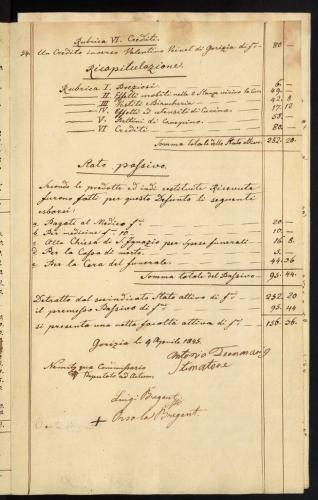 Rubrica VI. Crediti.
24. Un Credito inverso Valentino di Gorizia di f.- 80 -
Ricapitulazione.
Rubrica I. Preziosi 6 -
II. Effetti mobili nelle 2 Stanze 49 -
III. Vestiti e Biancheria 42. 8
IV. Effetti ed utensili di Cucina 17. 12
V. Bottami di 58. -
VI Crediti 80. -
Somma totale dello Stato attivo 252. 20.
Stato passivo.
Secondo le prodotte ed indi restituite Ricevute
furono fatti per questo Defunto li seguenti
esborsi:
a Pagati al Medico f.- 20 -
b Per medicine f.- 10. 10. -
c Alla Chiesa di S. Ignazio per spese funerali 16. 8.
d Per la Cassa di morto. 5. -
e Per la Cera del funerale. 44. 36
Somma totale del Passivo 95. 44.
Detratto dal suindicato Stato attivo di f.- 252. 20
il premesso Passivo di f.- 95. 44
si presenta una netta facoltà attiva di f.- 156. 36.
Gorizia li 9 Aprile 1845.
Antonio
Stimatore
qua Commissario
Deputato ad Actum.
Luigi Bregant
+ Orsola Bregant.